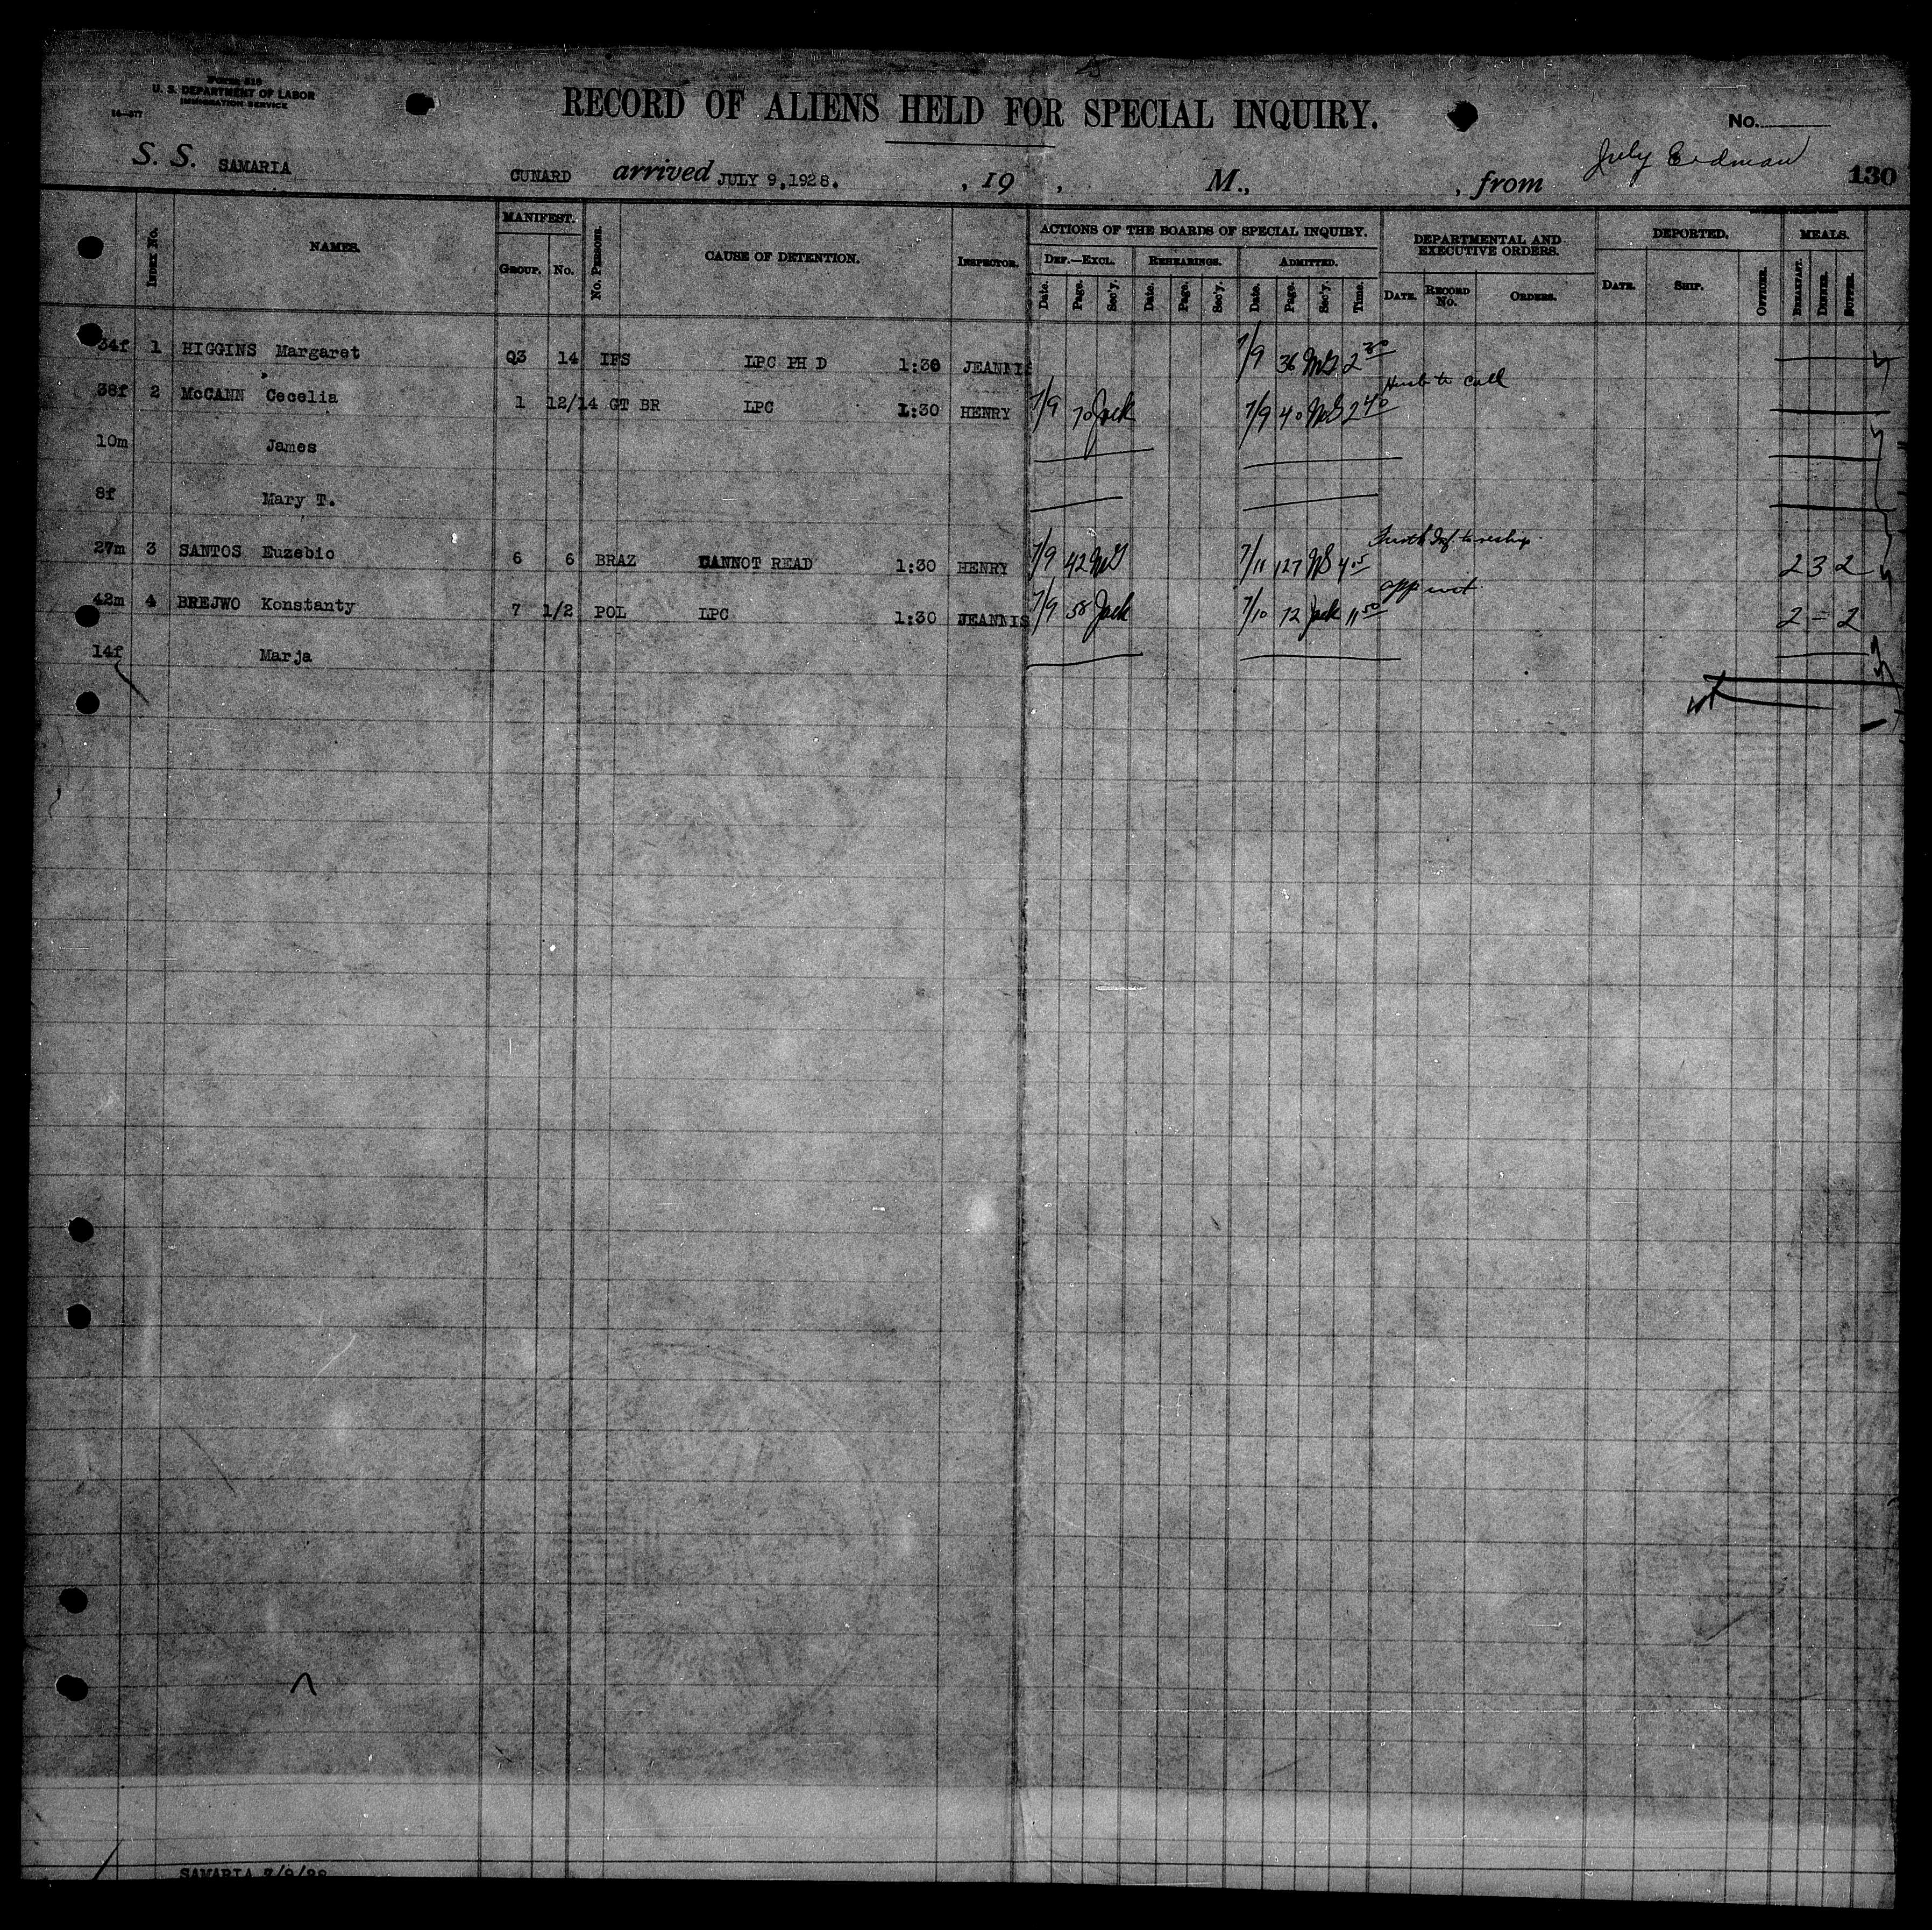 Form 510
U. S. DEPARTMENT OF LABOR
IMMIGRATION SERVICE
14—577
RECORD OF ALIENS HELD FOR SPECIAL INQUIRY.
No.
S. S. SAMARIA CUNARD arrived JULY 9,1928. , 19 , M., , from July Erdman 130
INDEX No. NAMES. MANIFEST. GROUP. No. No. PERSONS. CAUSE OF DETENTION. INSPECTOR. ACTIONS OF THE BOARDS OF SPECIAL INQUIRY. DEPARTMENTAL AND EXECUTIVE ORDERS. DEPORTED. MEALS.
DEF.—EXCL. REHEARINGS. ADMITTED.
Date. Page. Sec'y. Date. Page. Sec'y. Date. Page. Sec'y. Time. DATE. RECORD No. ORDERS. DATE. SHIP. OFFICER. BREAKFAST. DINNER. SUPPER.
34f 1 HIGGINS Margaret Q3 14 IFS LPC PH D 1:30 JEANNIS 7/9 36 McG 2 30
38f 2 McCANN Cecelia 1 12/14 GT BR LPC 1:30 HENRY 7/9 70 Jack 7/9 40 McG 2 40 Husb to call
10m James
8f Mary T.
27m 3 SANTOS Euzebio 6 6 BRAZ CANNOT READ 1:30 HENRY 7/9 42 McG 7/11 127 4 05 to reship 2 3 2
42m 4 BREJWO Konstanty 7 1/2 POL LPC 1:30 JEANNIS 7/9 58 Jack 7/10 72 Jack 11 50 app wit 2 - 2
14f Marja
SAMARIA 7/9/28